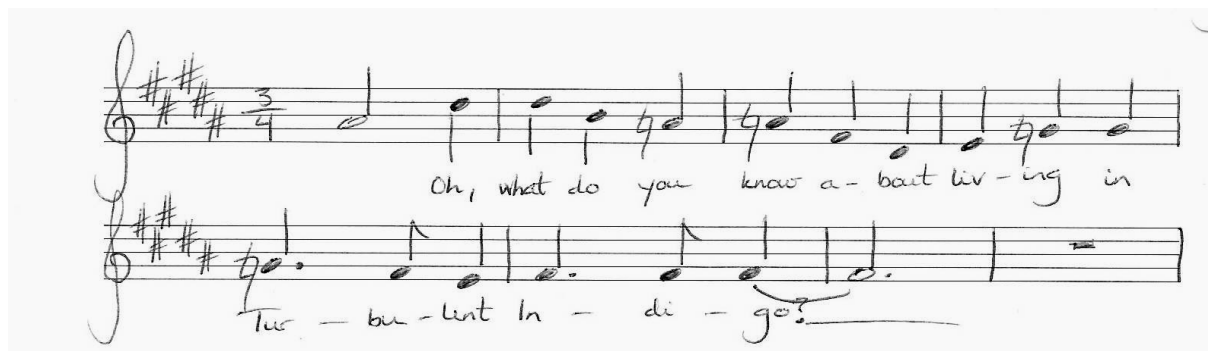 3
4
Oh, what do you know a-bout liv-ing in
Tur-bu-lent In-di-go?